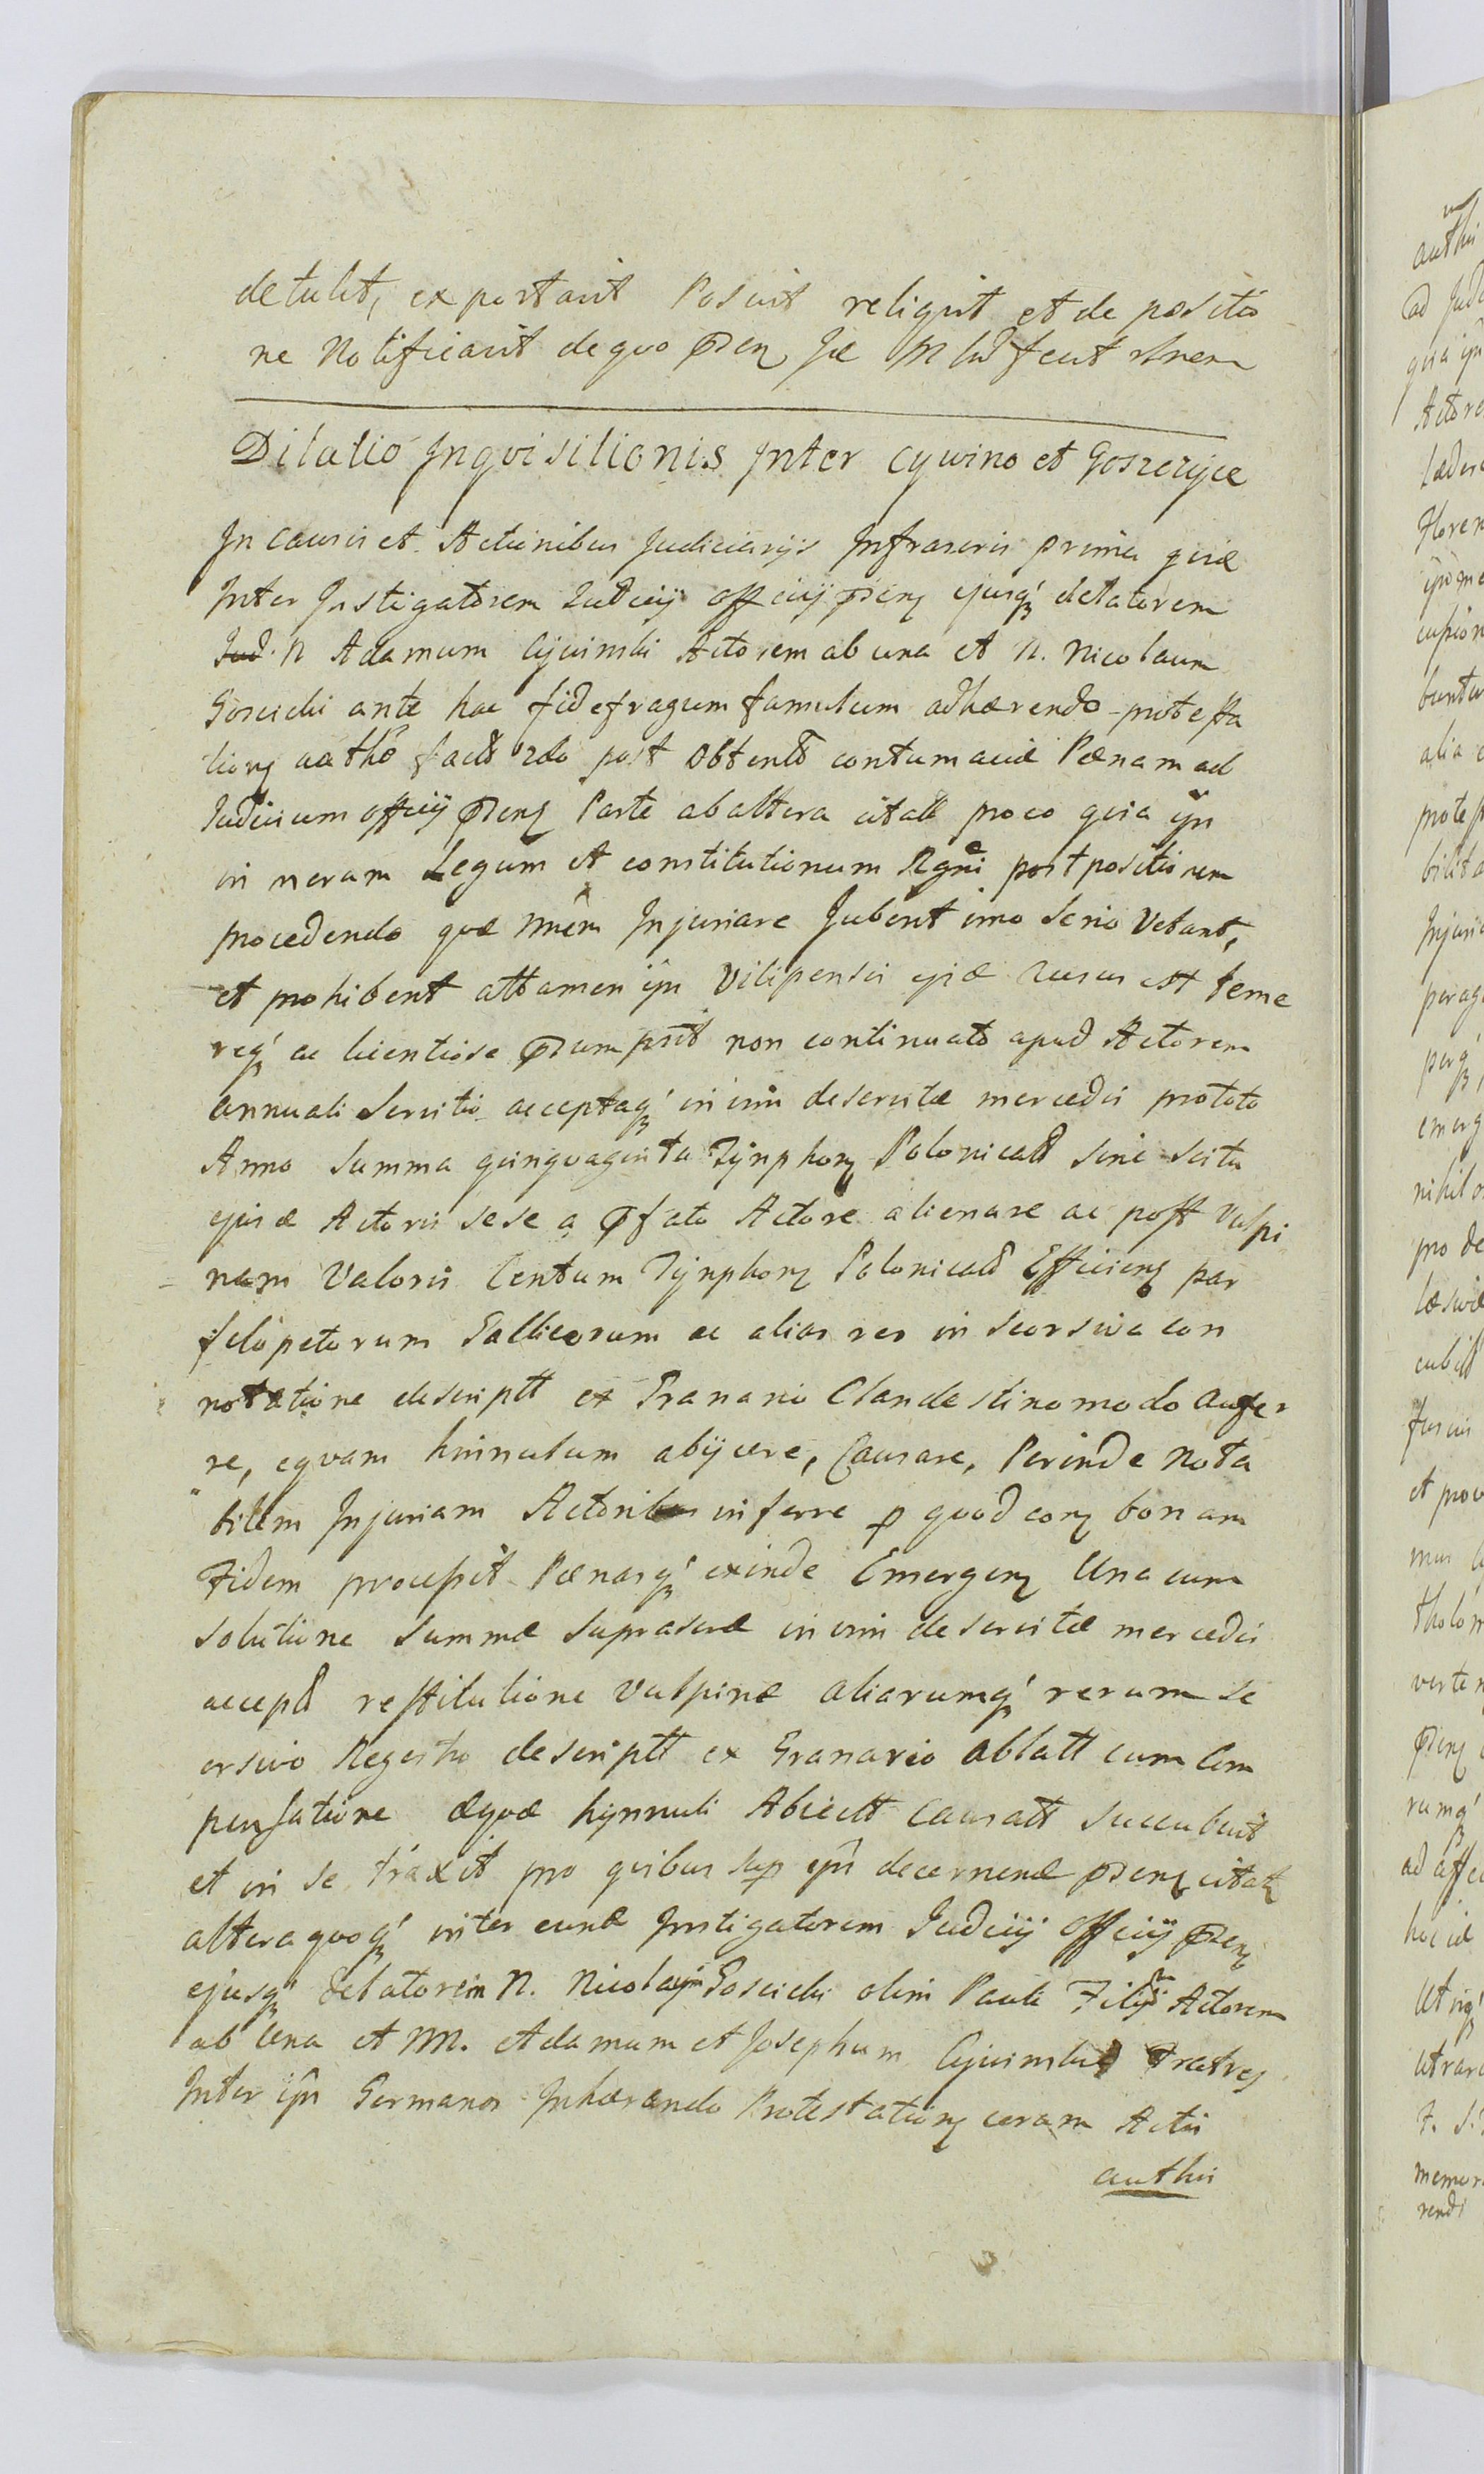 detulit, exportavit Posuit reliquit et de positio
ne Notificavit de quo Pñz fecit
Dilatio Inqvisitionis Inter Cywino et Goszczyce
In Causis et Actionibus Judiciarijs Infrascris prima quidē
Inter Instigatorem Judicij officij Pñz ejusq́ delatorem
N Adamum Cywinski Actorem ab una et N. Nicolaum
Goscicki ante hac fidefragum famulum adhærendo protesta
tionj facto post obtento contumaciæ Pænam ad
Judicium officij Pñz Parte ab altera citat pro eo quia ipse
in meram Legum et constitutionum Regni postpositionem
procedendo quæ neminem Injuriare Jubent imo serio Vetant,
et prohibent attamen ijs Vilipensis ausus est teme
req́ ac licentiose non continuato apud Actorem
annuali servitio acceptaq́ in vim deservitæ mercedis pro toto
Anno Summa quinquaginta Tynphonz Polonicali sine scitu
ejusdē Actoris sese a Pfato Actore alienare ac post Vulpi
nam Valoris Centum Tynphonz Polonicali Efficienz par
sclopetorum Gallicorum ac alias res in seorsiva con
notatione descriptt ex Granario Clandestino modo aufer
re, eqvam hinnulum abijcere, Causare, Perinde Nota
bilem Injuriam Actoribus inferre p quod eorz bonam
Fidem procepit Pænasq́ exinde Emergenz Una cum
solutione Summæ suprascræ in vim deservitæ mercedis
accept restitutione Vulpinæ aliarumq́ rerum se
orsivo Regestro descriptt ex Granario ablatt cum Com
pensatione æqvæ hynnuli Abiectt Causatt succubuit
et in se traxit pro quibus sup decernenđ Pñz citat
altera quoq́ inter eunđ Instigatorem Judicij officij Pñz
ejusq́ delatorem N. Nicolaum Goscicki olim Pauli Filium Actorem
ab Una et NN. Adamum et Josephum Cywinskie Fratres
Inter Germanos Inhærendo Protestationz coram Actis
authis